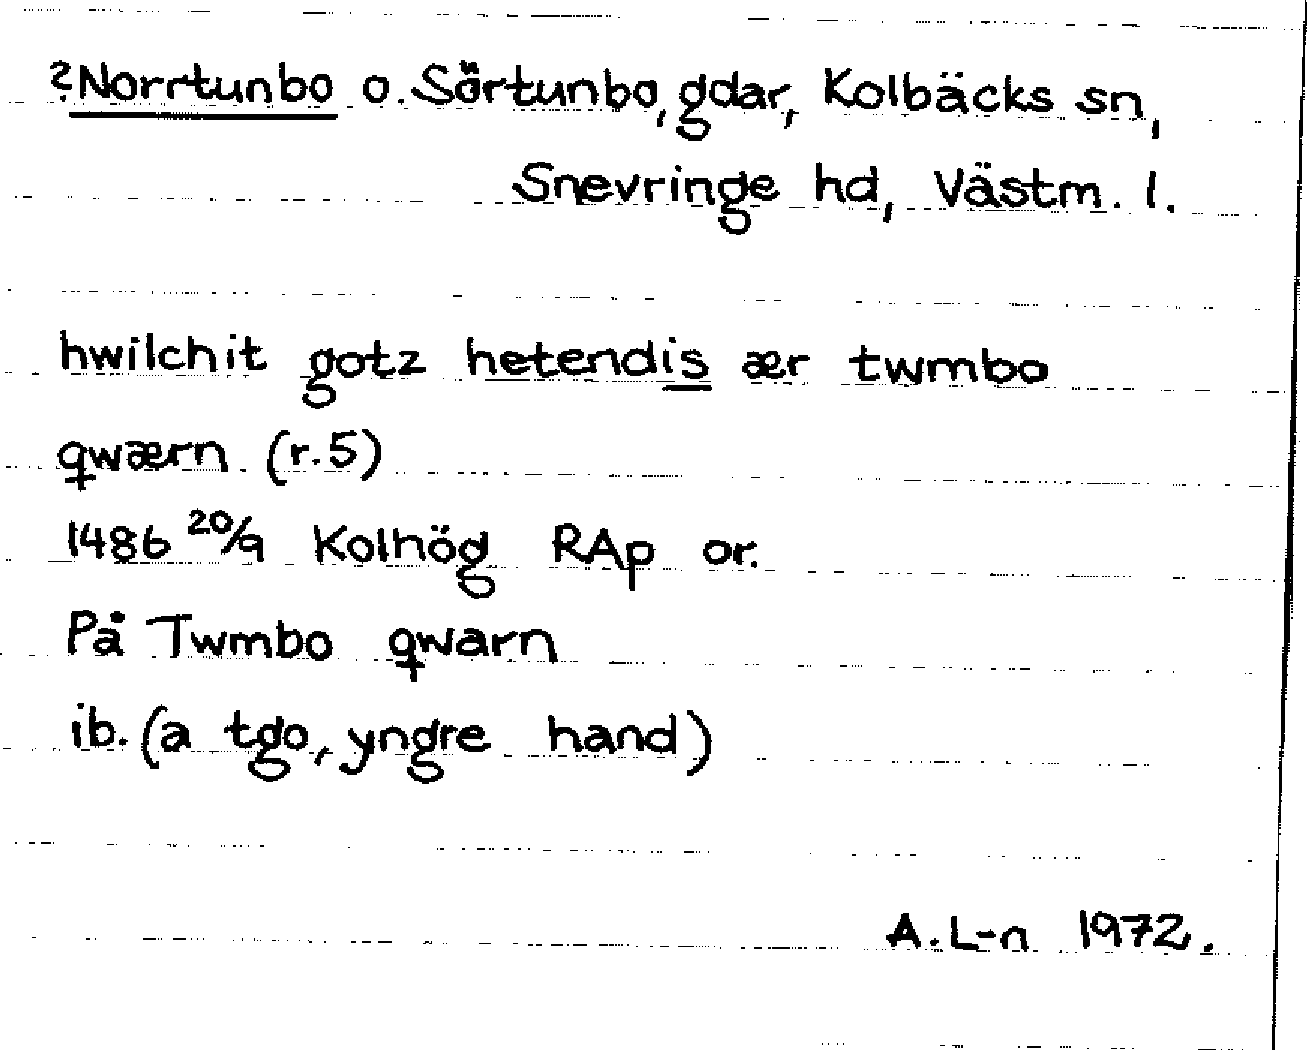 ?Norrtunbo o. Sörtunbo, gdar, Kolbäcks sn,
Snevringe hd, Västm. l.
hwilchit gotz hetendis ær twmbo
qwærn (r.5)
1486 20/9 Kolhög RAp or.
På Twmbo qwarn
ib. (a tgo, yngre hand)
A.L-n 1972.